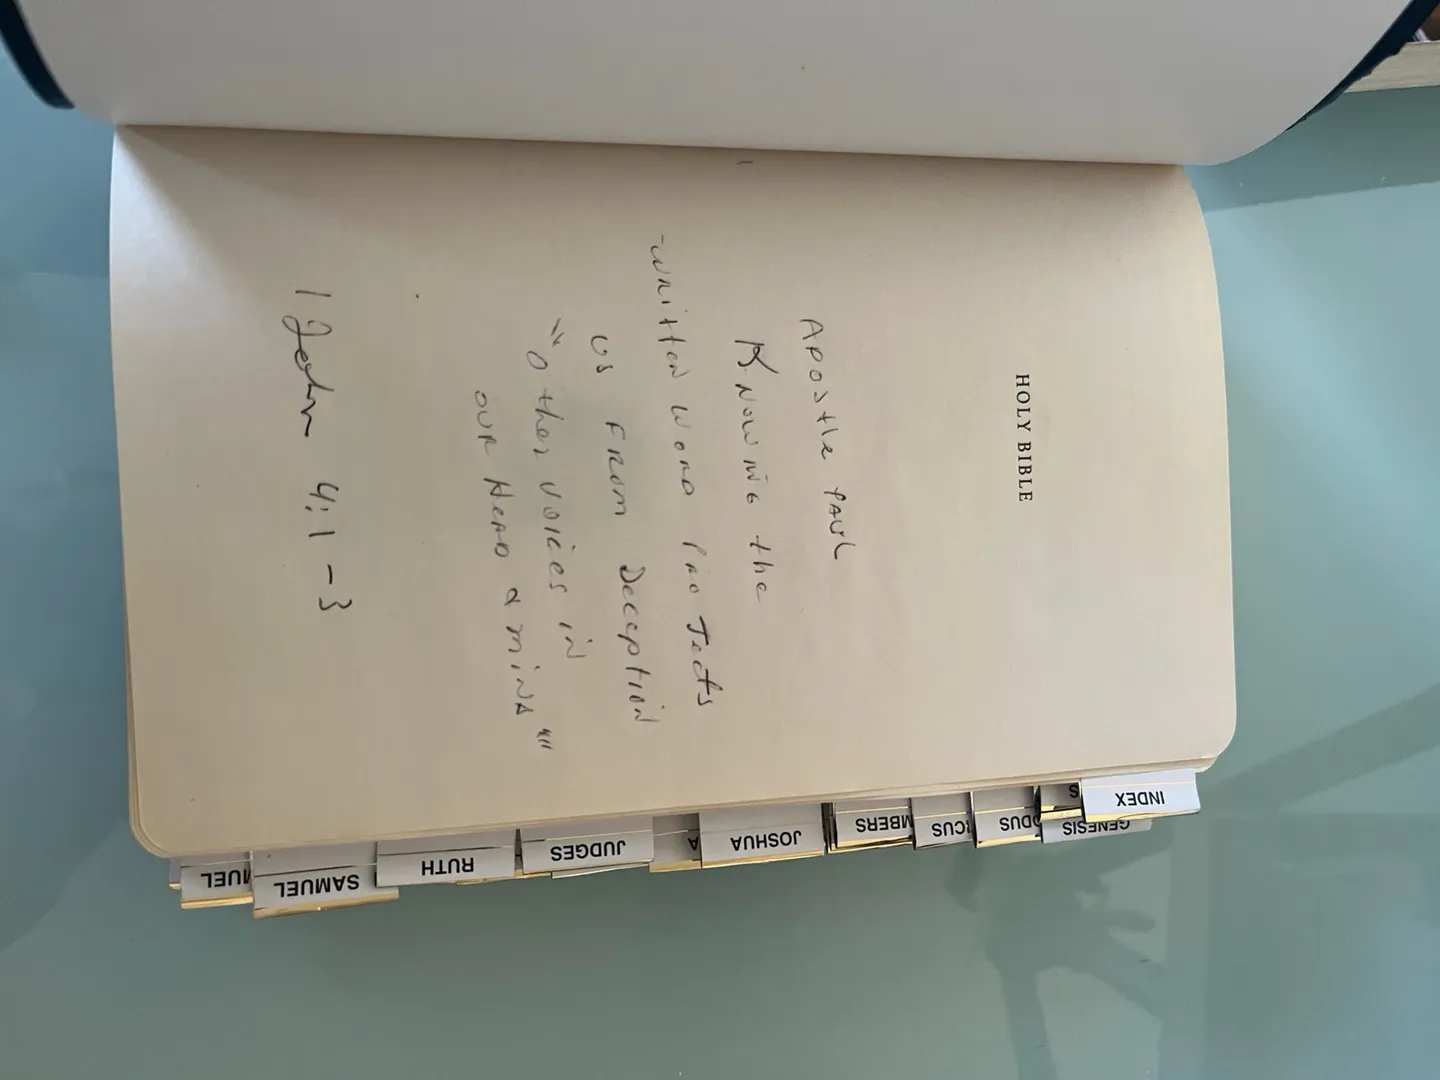 HOLY BIBLE
APOStle PAUL
KNOWING the
-WRITTEN WORD PROTects
US FROM DECEPTION
"Other VOICES IN
OUR HEAD & MIND"
1 John 4:1-3
INDEX
S
GENESIS
ODUS
ICUS
MBERS
JOSHUA
A
JUDGES
RUTH
SAMUEL
UEL